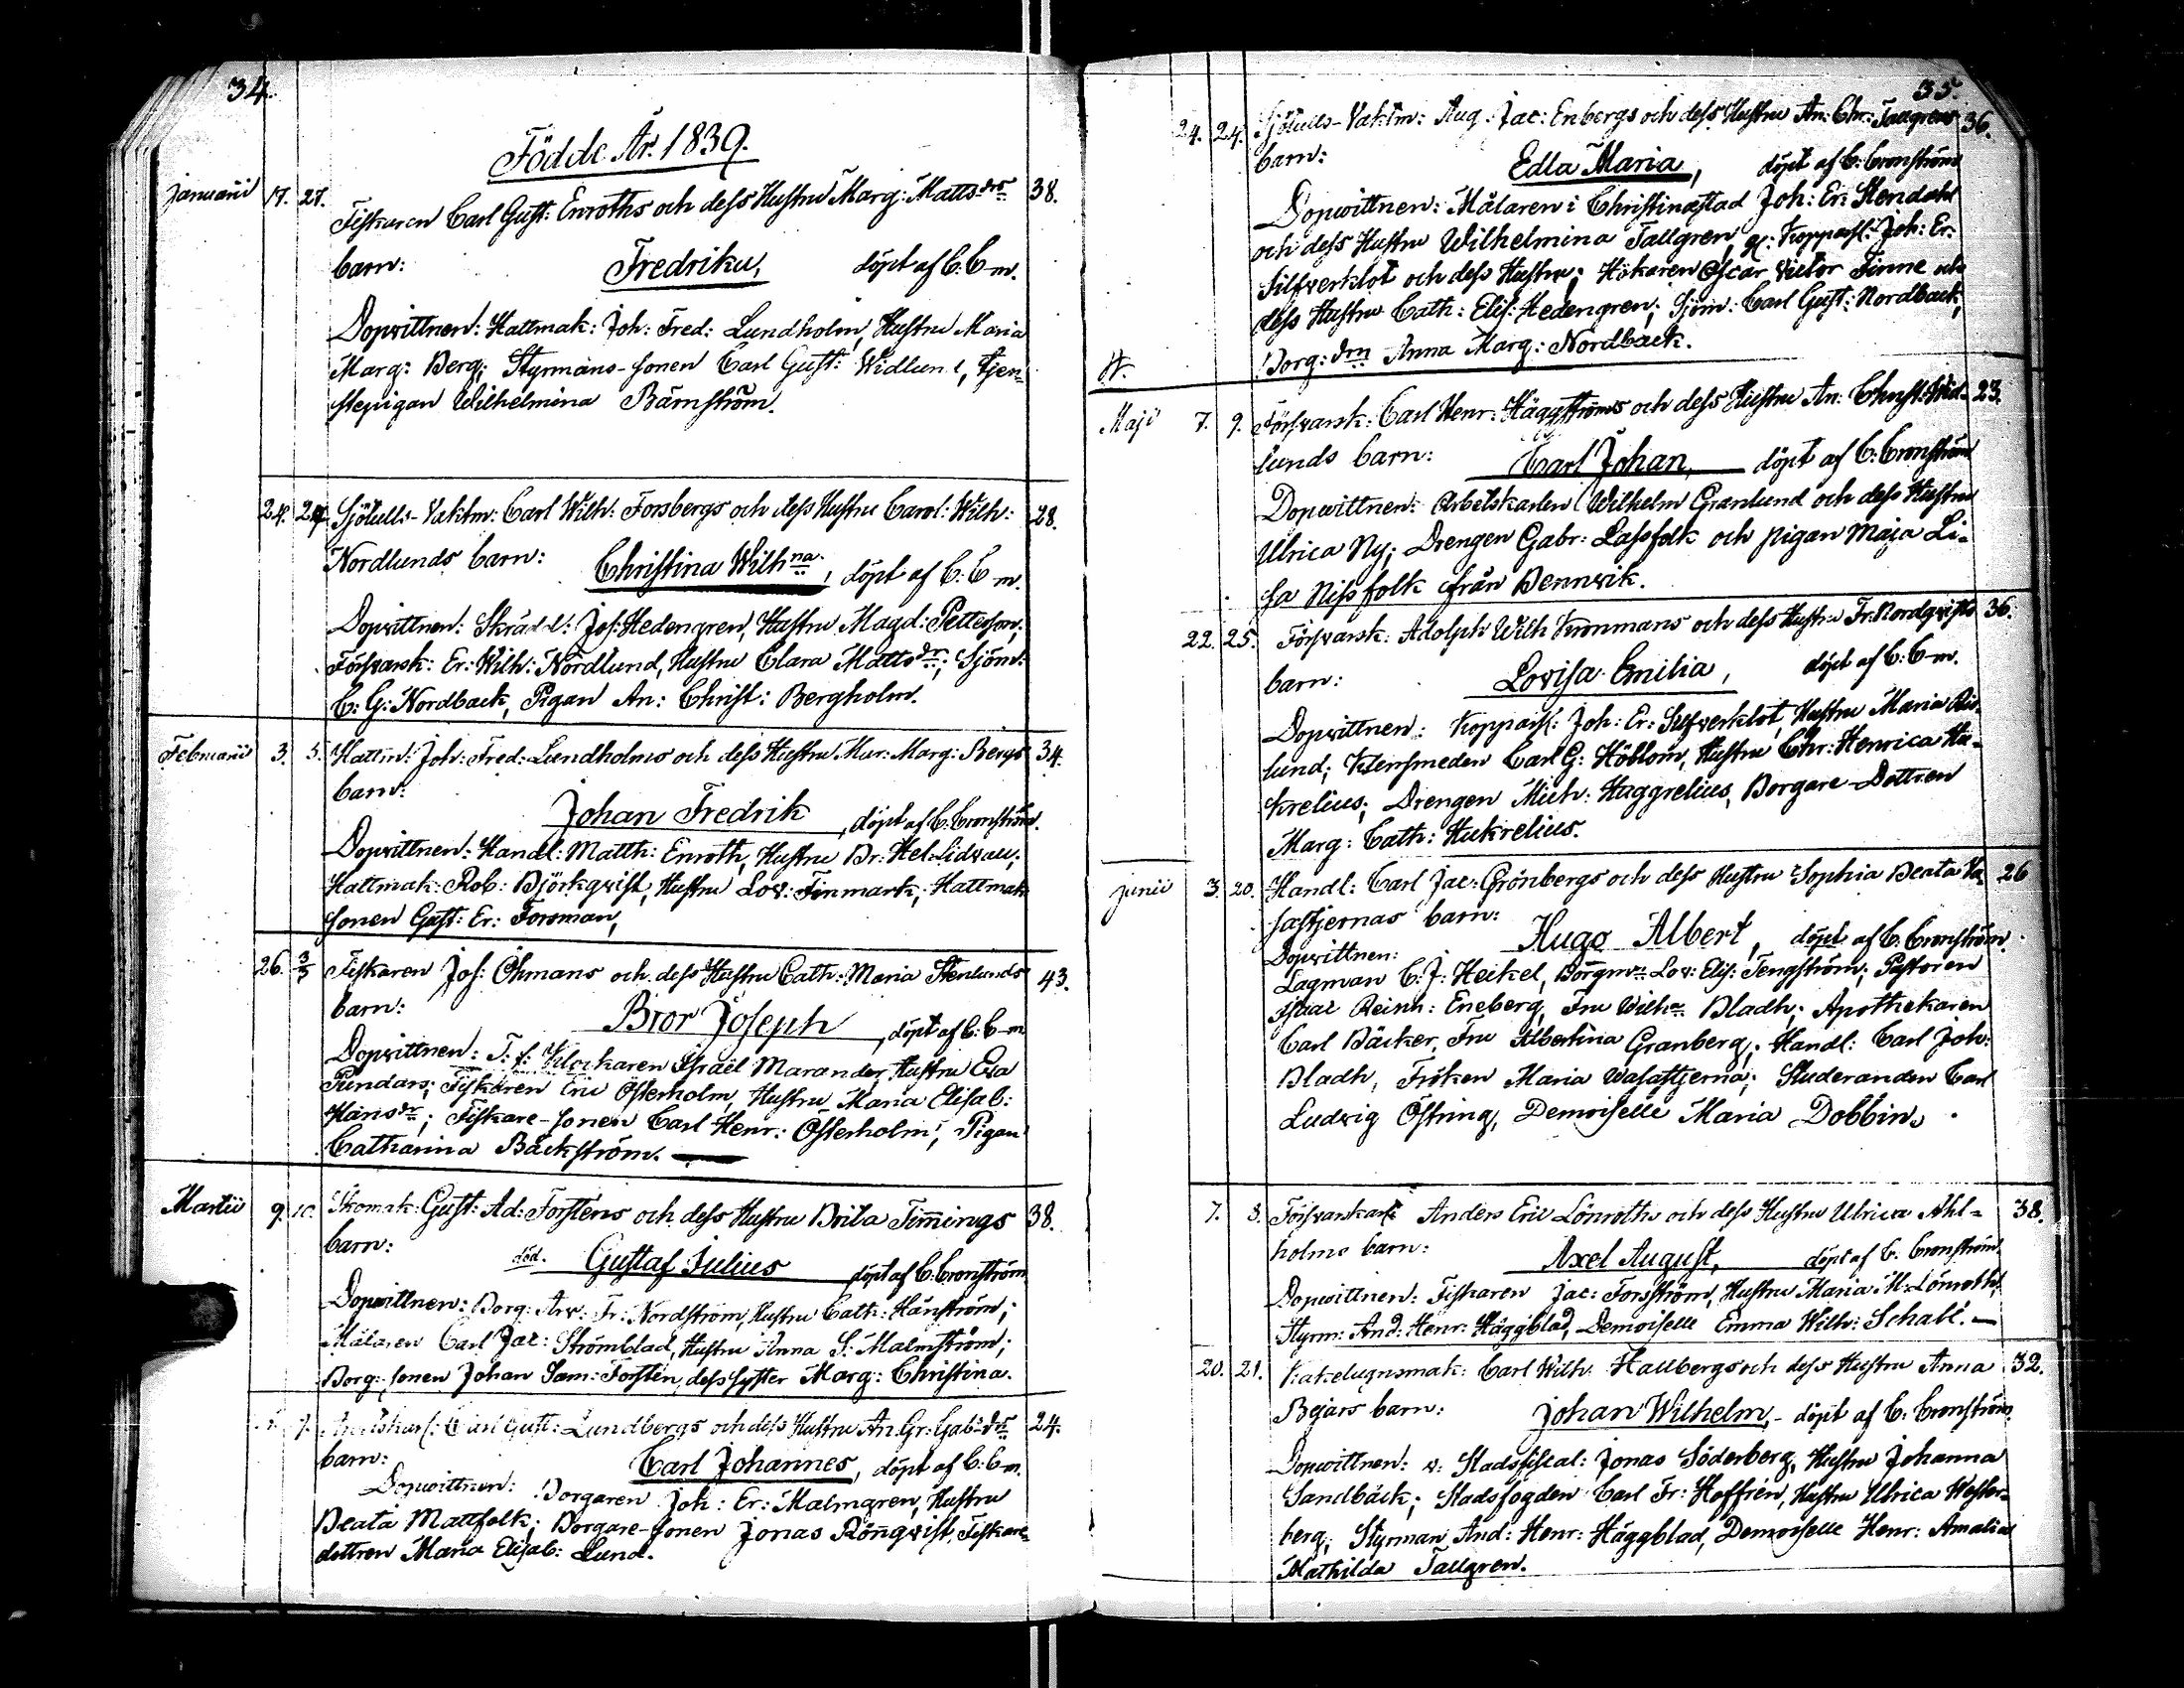 34.
Födde År. 1839.
Januarii 17. 27. Fiskaren Carl Gust: Enroths och dess Hustru Marg: Mattsdrs 38.
barn: Fredrika, döpt af C: C-m.
Dopvittnen: Hattmak: Joh: Fred: Lundholm, Hustru Maria
Marg: Berg; Styrmans-sonen Carl Gust: Widlund, tjen-
stepigan Wilhelmina Bärnström.
24. 27. Sjötulls-Vaktm: Carl Wilh: Forsbergs och dess Hustru Carol: Wilh: 28.
Nordlunds barn: Christina Wilhna, döpt af C: C-m.
Dopvittnen: Skrädd: Jos: Hedengren, Hustru Magd: Petterson;
Försvarsk: Er: Wilh: Nordlund, Hustru Clara Mattsdr; Sjöm:
C: G: Nordback, Pigan An: Christ: Bergholm.
Februarii 3. 5. Hattm: Joh: Fred: Lundholms och dess Hustru Mar: Marg: Bergs 34.
barn: Johan Fredrik, döpt af C: Cronström.
Dopvittnen: Handl: Matth: Enroth, Hustru Br: Hel: Lidvall;
Hattmak: Rob: Björkqvist, Hustru Lov: Finmark; Hattmak-
sonen Gust: Er: Forsman,
26. 3/3 Fiskaren Jos: Öhmans och dess Hustru Cath: Maria Stenlunds 43.
barn: Bror Joseph, döpt af C: C-m
Dopvittnen: T. f. Klockaren Israël Marander, Hustru Eva
Pundars; Fiskaren Eric Österholm, Hustru Maria Elisab:
Hansdr; Fiskare-sonen Carl Henr: Österholm, Pigan
Catharina Bäckström.
Martii 9. 10. Skomak: Gust: Ad: Forstens och dess Hustru Brita Timmings 38.
barn: död. Gustaf Julius döpt af C: Cronström
Dopvittnen: Borg: Arv: Fr: Nordström, Hustru Cath: Hanström;
Målaren Carl Jac: Strömblad, Hustru Anna S: Malmström;
Borg: sonen Johan Sam: Forstén, dess syster Marg: Christina.
7. Carl Gust: Lundbergs och dess Hustru An. Gr: Gabsdrs 24.
barn: Carl Johannes, döpt af C: C-m.
Dopvittnen: Borgaren Joh: Er: Malmgren, Hustru
Beata Mattfolk; Borgare-sonen Jonas Rönqvist, Fiskare-
dottren Maria Elisab: Lund.
35
24. 24. Sjötulls-Vaktm: Aug: Jac: Enbergs och dess Hustru An: Chr: Tallgrens 36.
barn: Edla Maria, döpt af C: Cronström
Dopvittnen: Målaren i Christinæstad Joh: Er: Stendahl
och dess Hustru Wilhelmina Tallgren, gl: Kopparsl: Joh: Er:
Silfverklot och dess Hustru; Hökaren Oscar Victor Finne och
dess Hustru Cath: Elis: Hedengren; Sjöm: Carl Gust: Nordback,
Borg: drn Anna Marg: Nordback.
Maji 7. 9. Försvarsk: Carl Henr: Häggströms och dess Hustru An: Christ: Wid- 23.
lunds barn: Carl Johan, döpt af C: Cronström
Dopvittnen: Arbetskarlen Wilhelm Granlund och dess Hustru
Ulrica Ny; Drengen Gabr: Lassfolk och pigan Maja Li-
sa Nissfolk från Bennvik.
22. 25. Försvarsk: Adolph Wilh Kronmans och dess Hustru Fr: Nordqvists 36.
barn: Lovisa Emilia, döpt af C: C-m.
Dopvittnen: Kopparsl: Joh: Er: Silfverklot, Hustru Maria
lund; Klensmeden Carl G: Höblom, Hustru Chr: Henrica Hu-
krelius; Drengen Mich: Huggrelius, Borgare-Dottren
Marg: Cath: Hukrelius.
Junii 3. 20. Handl: Carl Jac: Grönbergs och dess Hustru Sophia Beata Wa- 26
sastjernas barn: Hugo Albert, döpt af C. Cronström.
Dopvittnen:
Lagman C: J: Heikel, Borgm: Lov: Elis: Tengström; Pastoren
Isaac Reinh: Eneberg, Fru Wilhna Bladh; Apothekaren
Carl Bäcker, Fru Albertina Granberg; Handl: Carl Joh:
Bladh, Fröken Maria Wasastjerna; Studeranden Carl
Ludvig Östring, Demoiselle Maria Dobbin.
7. 3. Försvarskarl: Anders Eric Lönroths och dess Hustru Ulrica Ahl- 38.
holms barn: Axel August, döpt af C. Cronström.
Dopvittnen: Fiskaren Jac: Forsström, Hustru Maria M: Lönroth,
Styrm: And: Henr: Häggblad, Demoiselle Emma Wilh: Schabl.
20. 21. Kakelugnsmak: Carl Wilh: Hallbergs och dess Hustru Anna 32.
Bejars barn: Johan Wilhelm, döpt af C. Cronström.
Dopvittnen: v: Stadsfiscal: Jonas Söderberg, Hustru Johanna
Sandbäck; Stadsfogden Carl Fr: Hoffrén, Hustru Ulrica Wester-
berg; Styrman And: Henr: Häggblad, Demoiselle Henr: Amalia
Mathilda Tallgren.